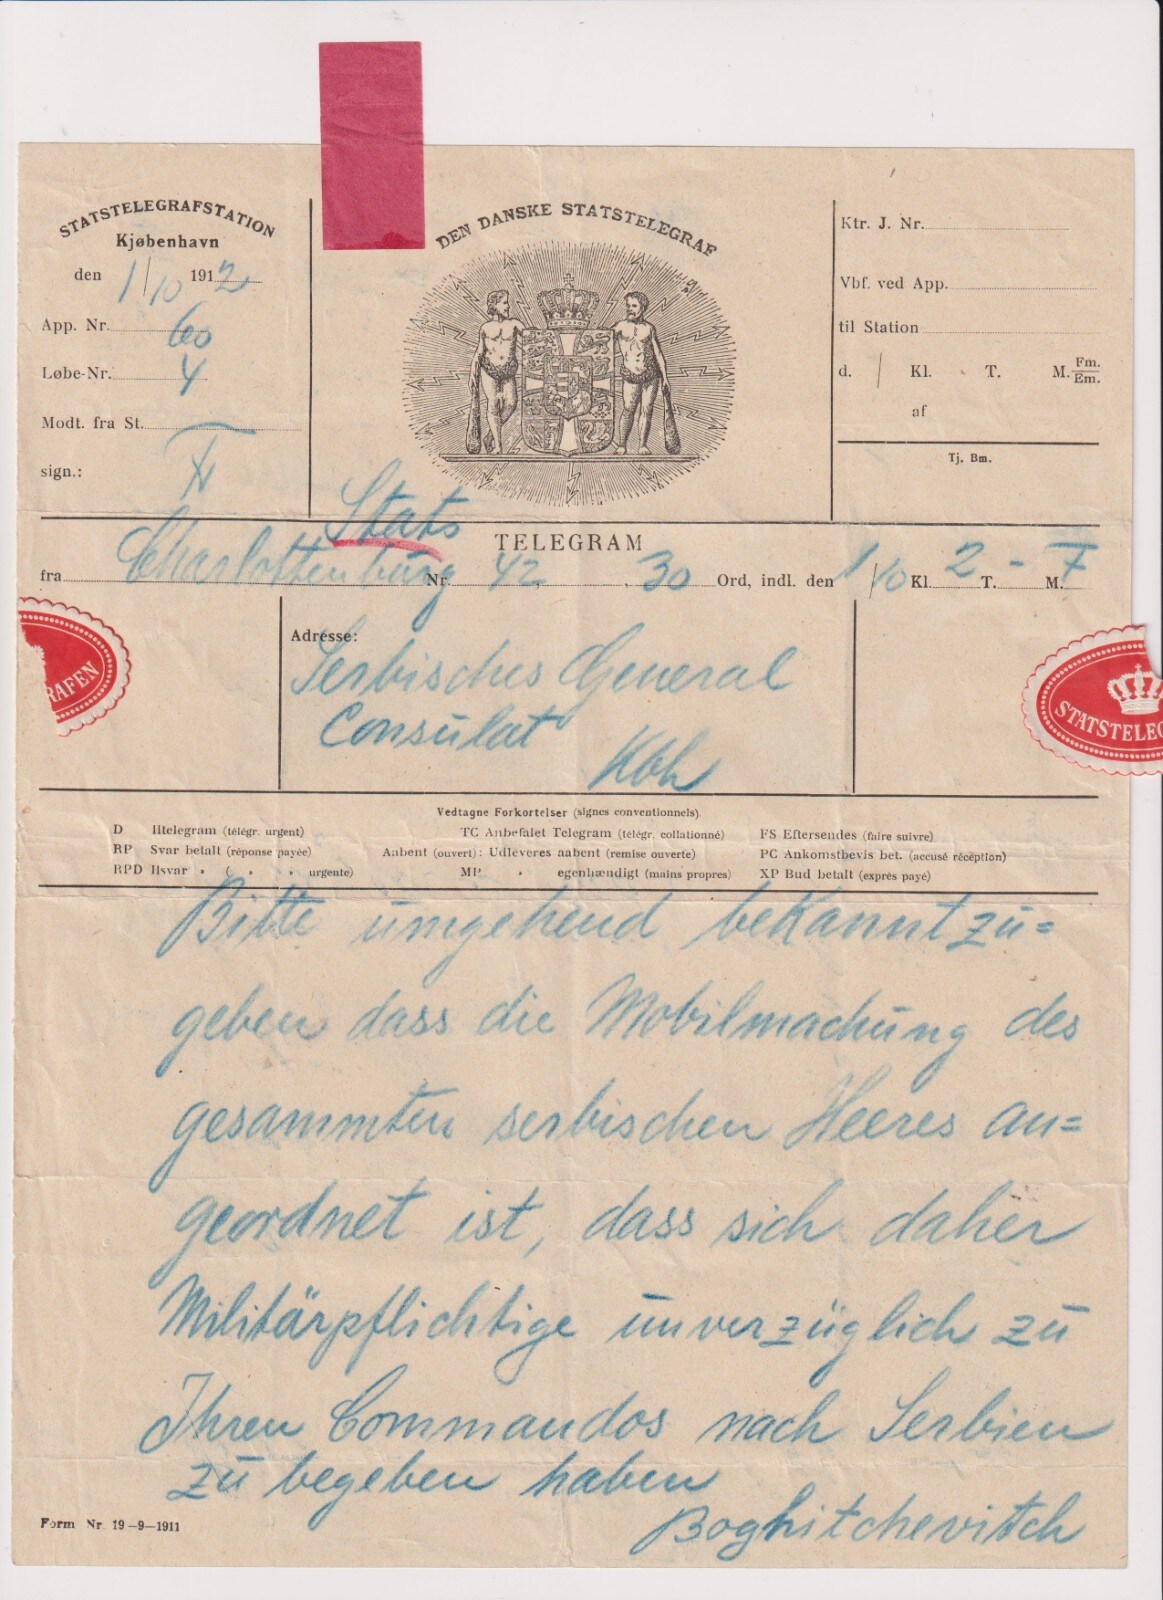 STATSTELEGRAFSTATION
Kjøbenhavn
den 1/10 1912
App. Nr. 60
Løbe-Nr. 4
Modt. fra St.
sign.:
DEN DANSKE STATSTELEGRAF
Ktr. J. Nr.
Vbf. ved App.
til Station
d. / Kl. T. M. Fm. Em.
af
Tj. Bm.
Stats
TELEGRAM
fra Charlottenburg Nr. 42, 30 Ord, indl. den 1/10 Kl. 2 - T. M. F
RAFEN
Adresse:
Serbisches General
Consulat
Kbh
STATSTELEG
Vedtagne Forkortelser (signes conventionnels)
D Iltelegram (télégr. urgent) TC Anbefalet Telegram (télégr. collationné) FS Eftersendes (faire suivre)
RP Svar betalt (réponse payée) Aabent (ouvert): Udleveres aabent (remise ouverte) PC Ankomstbevis bet. (accusé réception)
RPD Ilsvar „ ( „ „ urgente) MP „ egenhændigt (mains propres) XP Bud betalt (exprès payé)
Bitte umgehend bekanntzu=
geben dass die Mobilmachung des
gesammten serbischen Heeres an=
geordnet ist, dass sich daher
Militärpflichtige unverzüglich zu
Ihren Commandos nach Serbien
zu begeben haben
Boghitchevitch
Form Nr. 19-9-1911